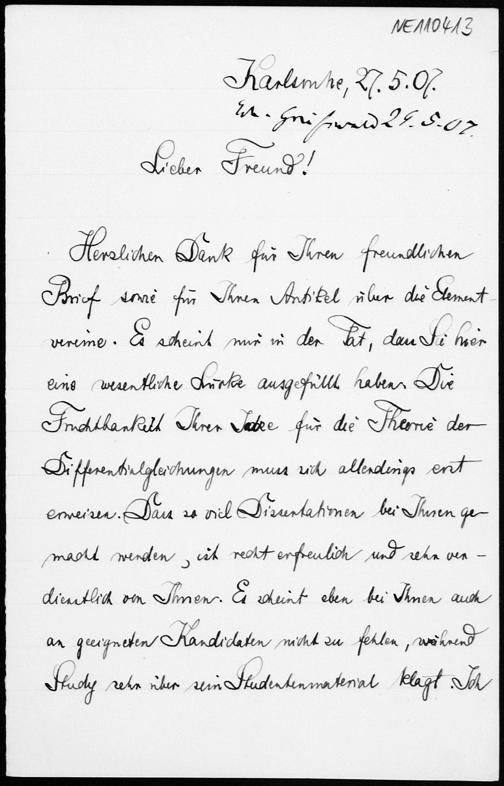 NE110413
Karlsruhe, 27.5.07.
Eh. Greifswald 29.5.07.
Lieber Freund!
Herzlichen Dank für Ihren freundlichen
Brief sowie für Ihren Artikel über die Element-
vereine. Es scheint mir in der Tat, dass Sie hier
eine wesentliche Lücke ausgefüllt haben. Die
Fruchtbarkeit Ihrer Idee für die Theorie der
Differentialgleichungen muss sich allerdings erst
erweisen. Dass so viel Dissertationen bei Ihnen ge-
macht werden, ist recht erfreulich und sehr ver-
dienstlich von Ihnen. Es scheint eben bei Ihnen auch
an geeigneten Kandidaten nicht zu fehlen, während
Study sehr über sein Studentenmaterial klagt. Ich